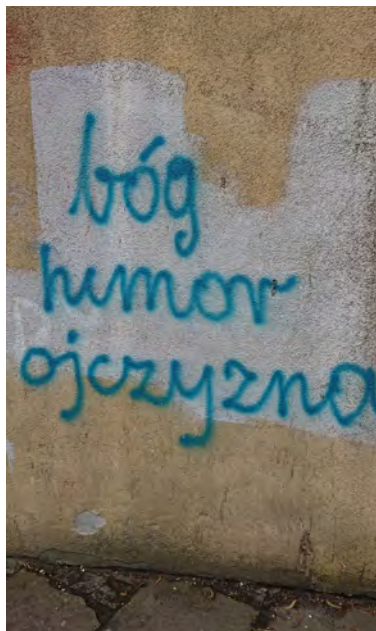 bóg
humor
ojczyzna